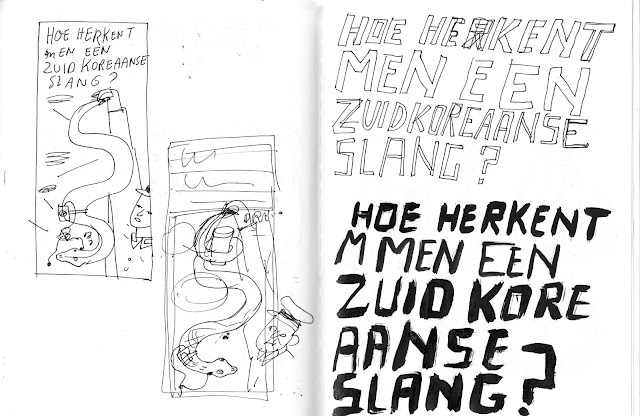 HOE HERKENT
MEN EEN
ZUID KOREAANSE
SLANG?
HOE HERKENT
MEN EEN
ZUIDKOREAANSE
SLANG?
HOE HERKENT
M MEN EEN
ZUID KORE
AANSE
SLANG?